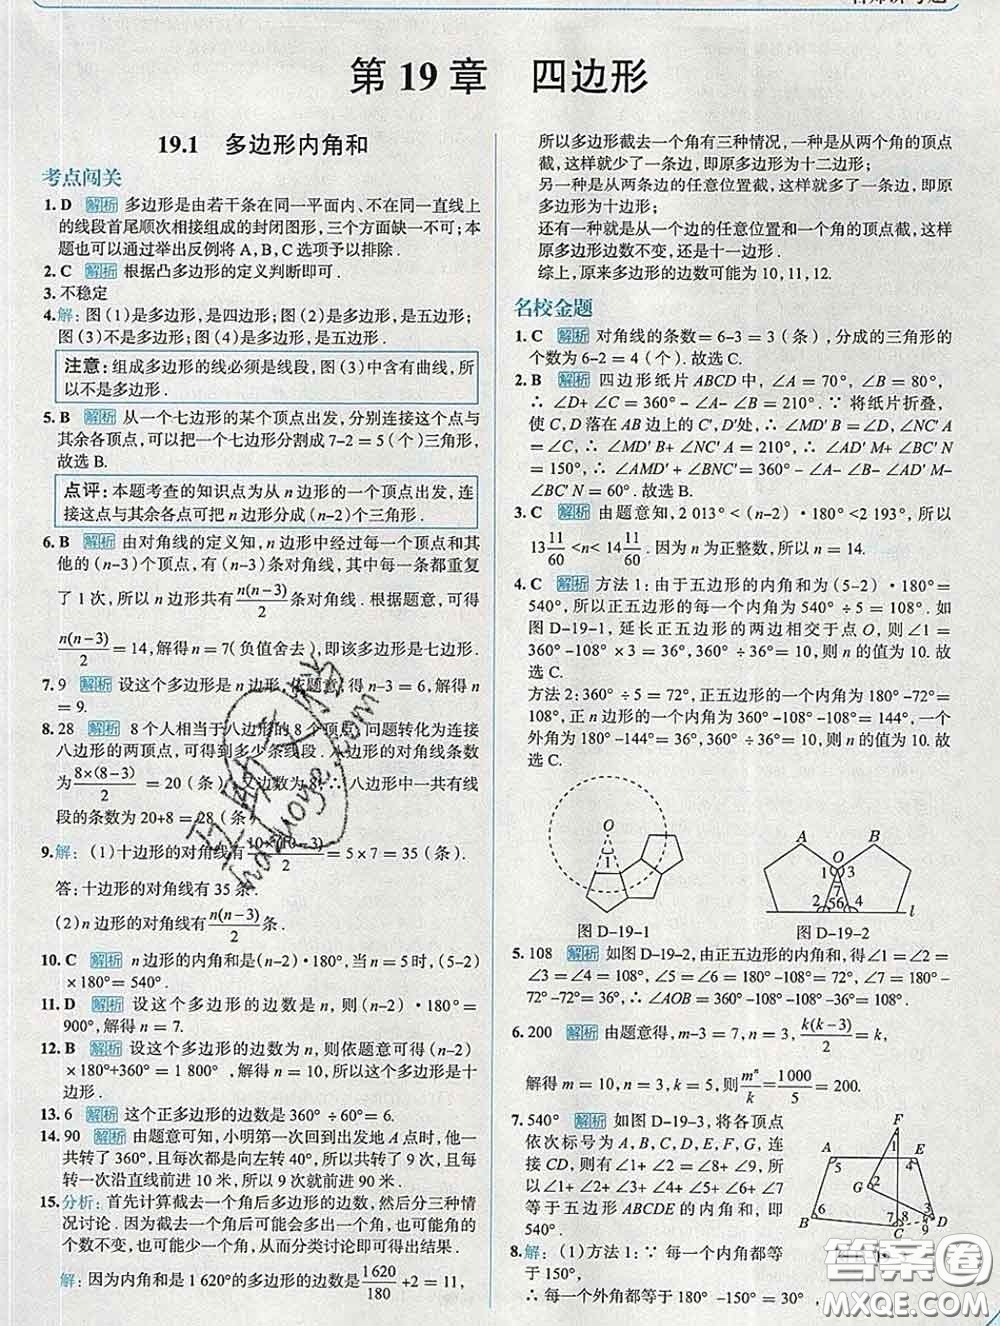 第19章 四边形
19.1 多边形内角和
考点闯关
1. D 解析 多边形是由若干条在同一平面内、不在同一直线上
的线段首尾顺次相接组成的封闭图形，三个方面缺一不可；本
题也可以通过举出反例将 A，B，C 选项予以排除.
2. C 解析 根据凸多边形的定义判断即可.
3. 不稳定
4. 解：图(1)是多边形，是四边形；图(2)是多边形，是五边形；
图(3)不是多边形；图(4)是多边形，是五边形.
注意：组成多边形的线必须是线段，图(3)中含有曲线，所
以不是多边形.
5. B 解析 从一个七边形的某个顶点出发，分别连接这个点与
其余各顶点，可以把一个七边形分割成 7-2=5(个)三角形，
故选 B.
点评：本题考查的知识点为从 n 边形的一个顶点出发，连
接这点与其余各点可把 n 边形分成(n-2)个三角形.
6. B 解析 由对角线的定义知，n 边形中经过每一个顶点和其
他的(n-3)个顶点，有(n-3)条对角线，其中每一条都重复
了1次，所以 n 边形共有 n(n-3)/2 条对角线. 根据题意，可得
n(n-3)/2=14，解得 n=7(负值舍去)，即该多边形是七边形.
7. 9 解析 设这个多边形是 n 边形，依题意，得 n-3=6，解得 n
=9.
8. 28 解析 8个人相当于八边形的8个顶点，问题转化为连接
八边形的两顶点，可得到多少条线段. 八边形的对角线条数
为 8×(8-3)/2=20(条)，又边数为8，∴八边形中一共有线
段的条数为 20+8=28(条).
9. 解：(1)十边形的对角线有 10×(10-3)/2=5×7=35(条).
答：十边形的对角线有 35 条.
(2)n 边形的对角线有 n(n-3)/2 条.
10. C 解析 n 边形的内角和是(n-2)·180°，当 n=5 时，(5-2)
×180°=540°.
11. D 解析 设这个多边形的边数是 n，则(n-2)·180°=
900°，解得 n=7.
12. B 解析 设这个多边形的边数为 n，则依题意可得(n-2)
×180°+360°=1 800°，解得 n=10，所以这个多边形是十
边形.
13. 6 解析 这个正多边形的边数是 360°÷60°=6.
14. 90 解析 由题意可知，小明第一次回到出发地 A 点时，他一
共转了 360°，且每次都是向左转 40°，所以共转了9次，且每
转一次沿直线前进 10 米，所以9次就前进 90 米.
15. 分析：首先计算截去一个角后多边形的边数，然后分三种情
况讨论. 因为截去一个角后可能会多出一个角，也可能角的
个数不变，也可能少一个角，从而分类讨论即可得出结果.
解：因为内角和是 1 620°的多边形的边数是 1 620/180+2=11，
所以多边形截去一个角有三种情况，一种是从两个角的顶点
截，这样就少了一条边，即原多边形为十二边形；
另一种是从两条边的任意位置截，这样就多了一条边，即原
多边形为十边形；
还有一种就是从一个边的任意位置和一个角的顶点截，这样
原多边形边数不变，还是十一边形.
综上，原来多边形的边数可能为 10，11，12.
名校金题
1. C 解析 对角线的条数=6-3=3(条)，分成的三角形的
个数为 6-2=4(个). 故选 C.
2. B 解析 四边形纸片 ABCD 中，∠A=70°，∠B=80°，
∴∠D+∠C=360°-∠A-∠B=210°. ∵将纸片折叠，
使 C，D 落在 AB 边上的 C′，D′处，∴∠MD′B=∠D，∠NC′A
=∠C，∴∠MD′B+∠NC′A=210°，∴∠AD′M+∠BC′N
=150°，∴∠AMD′+∠BNC′=360°-∠A-∠B-∠AD′M-
∠BC′N=60°. 故选 B.
3. C 解析 由题意知，2 013°<(n-2)·180°<2 193°，所以
13 11/60<n<14 11/60. 因为 n 为正整数，所以 n=14.
4. C 解析 方法1：由于五边形的内角和为(5-2)·180°=
540°，所以正五边形的每一个内角为 540°÷5=108°. 如
图 D-19-1，延长正五边形的两边相交于点 O，则∠1=
360°-108°×3=36°，360°÷36°=10，则 n 的值为 10. 故
选 C.
方法2：360°÷5=72°，正五边形的一个内角为 180°-72°=
108°，正 n 边形的一个内角为 360°-108°-108°=144°，一个
外角为 180°-144°=36°，360°÷36°=10，则 n 的值为 10. 故
选 C.
O
1
图 D-19-1
A
B
O
1 3
7
2 5 6 4
l
图 D-19-2
5. 108 解析 如图 D-19-2，由正五边形的内角和，得∠1=∠2
=∠3=∠4=108°，∠5=∠6=180°-108°=72°，∠7=180°-
72°-72°=36°，∴∠AOB=360°-108°-108°-36°=108°.
6. 200 解析 由题意得，m-3=7，n=3，k(k-3)/2=k，
解得 m=10，n=3，k=5，则 mⁿ/k=1 000/5=200.
7. 540° 解析 如图 D-19-3，将各顶点
依次标号为 A，B，C，D，E，F，G，连
接 CD，则有∠1+∠2=∠8+∠9，所
以∠1+∠2+∠3+∠4+∠5+∠6+∠7
等于五边形 ABCDE 的内角和，即
540°.
F
A
1
E
5
4
G
2
6
7
8
3
B
C
9
D
8. 解：(1)方法1：∵每一个内角都等
于 150°，
∴每一个外角都等于 180°-150°=30°，
答案卷
MXQE.COM